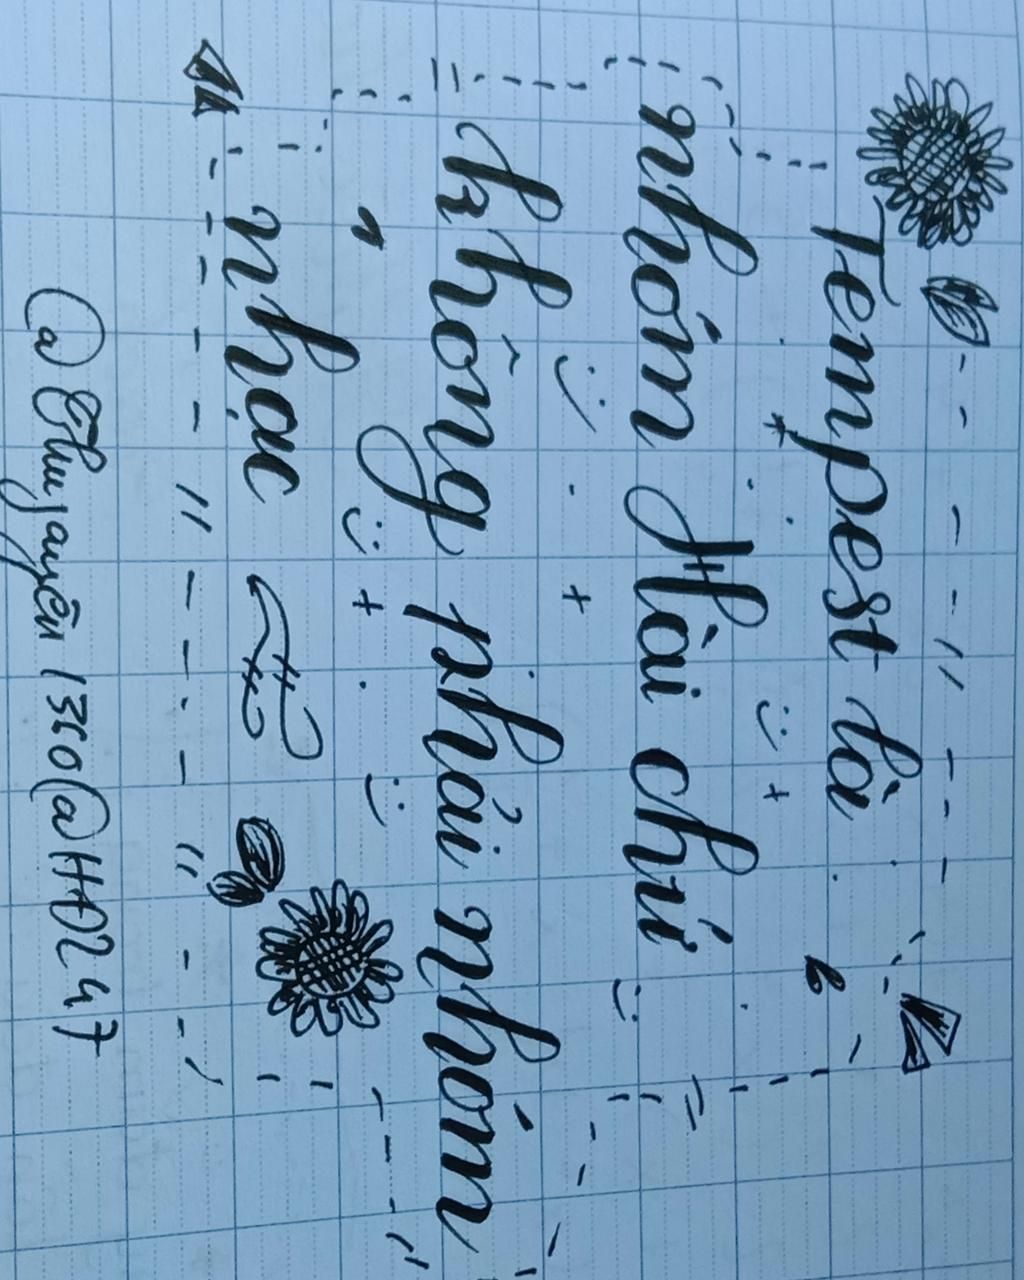 Tempest là
nhóm Hài chứ
không phải nhóm
nhạc
@thuyauyên1350@HĐ247